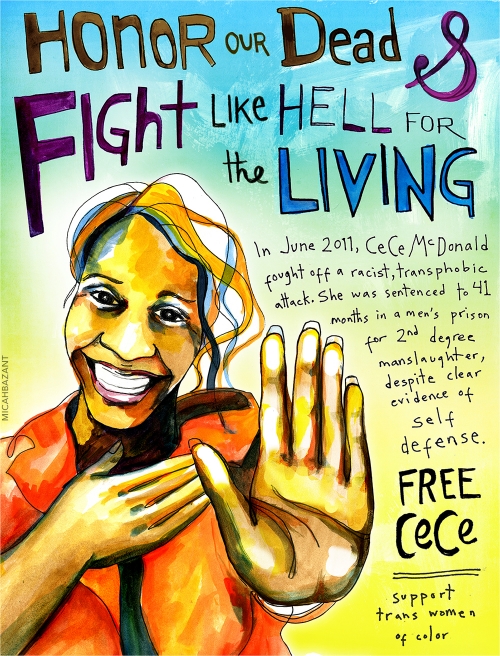 HONOR OUR Dead &
FIGht LIKE HELL FOR
the LIVING
In June 2011, CeCe McDonald
fought off a racist, transphobic
attack. She was sentenced to 41
months in a men's prison
for 2nd degree
manslaughter,
despite clear
evidence of
self
defense.
FREE
CeCe
support
trans women
of color
MICAHBAZANT